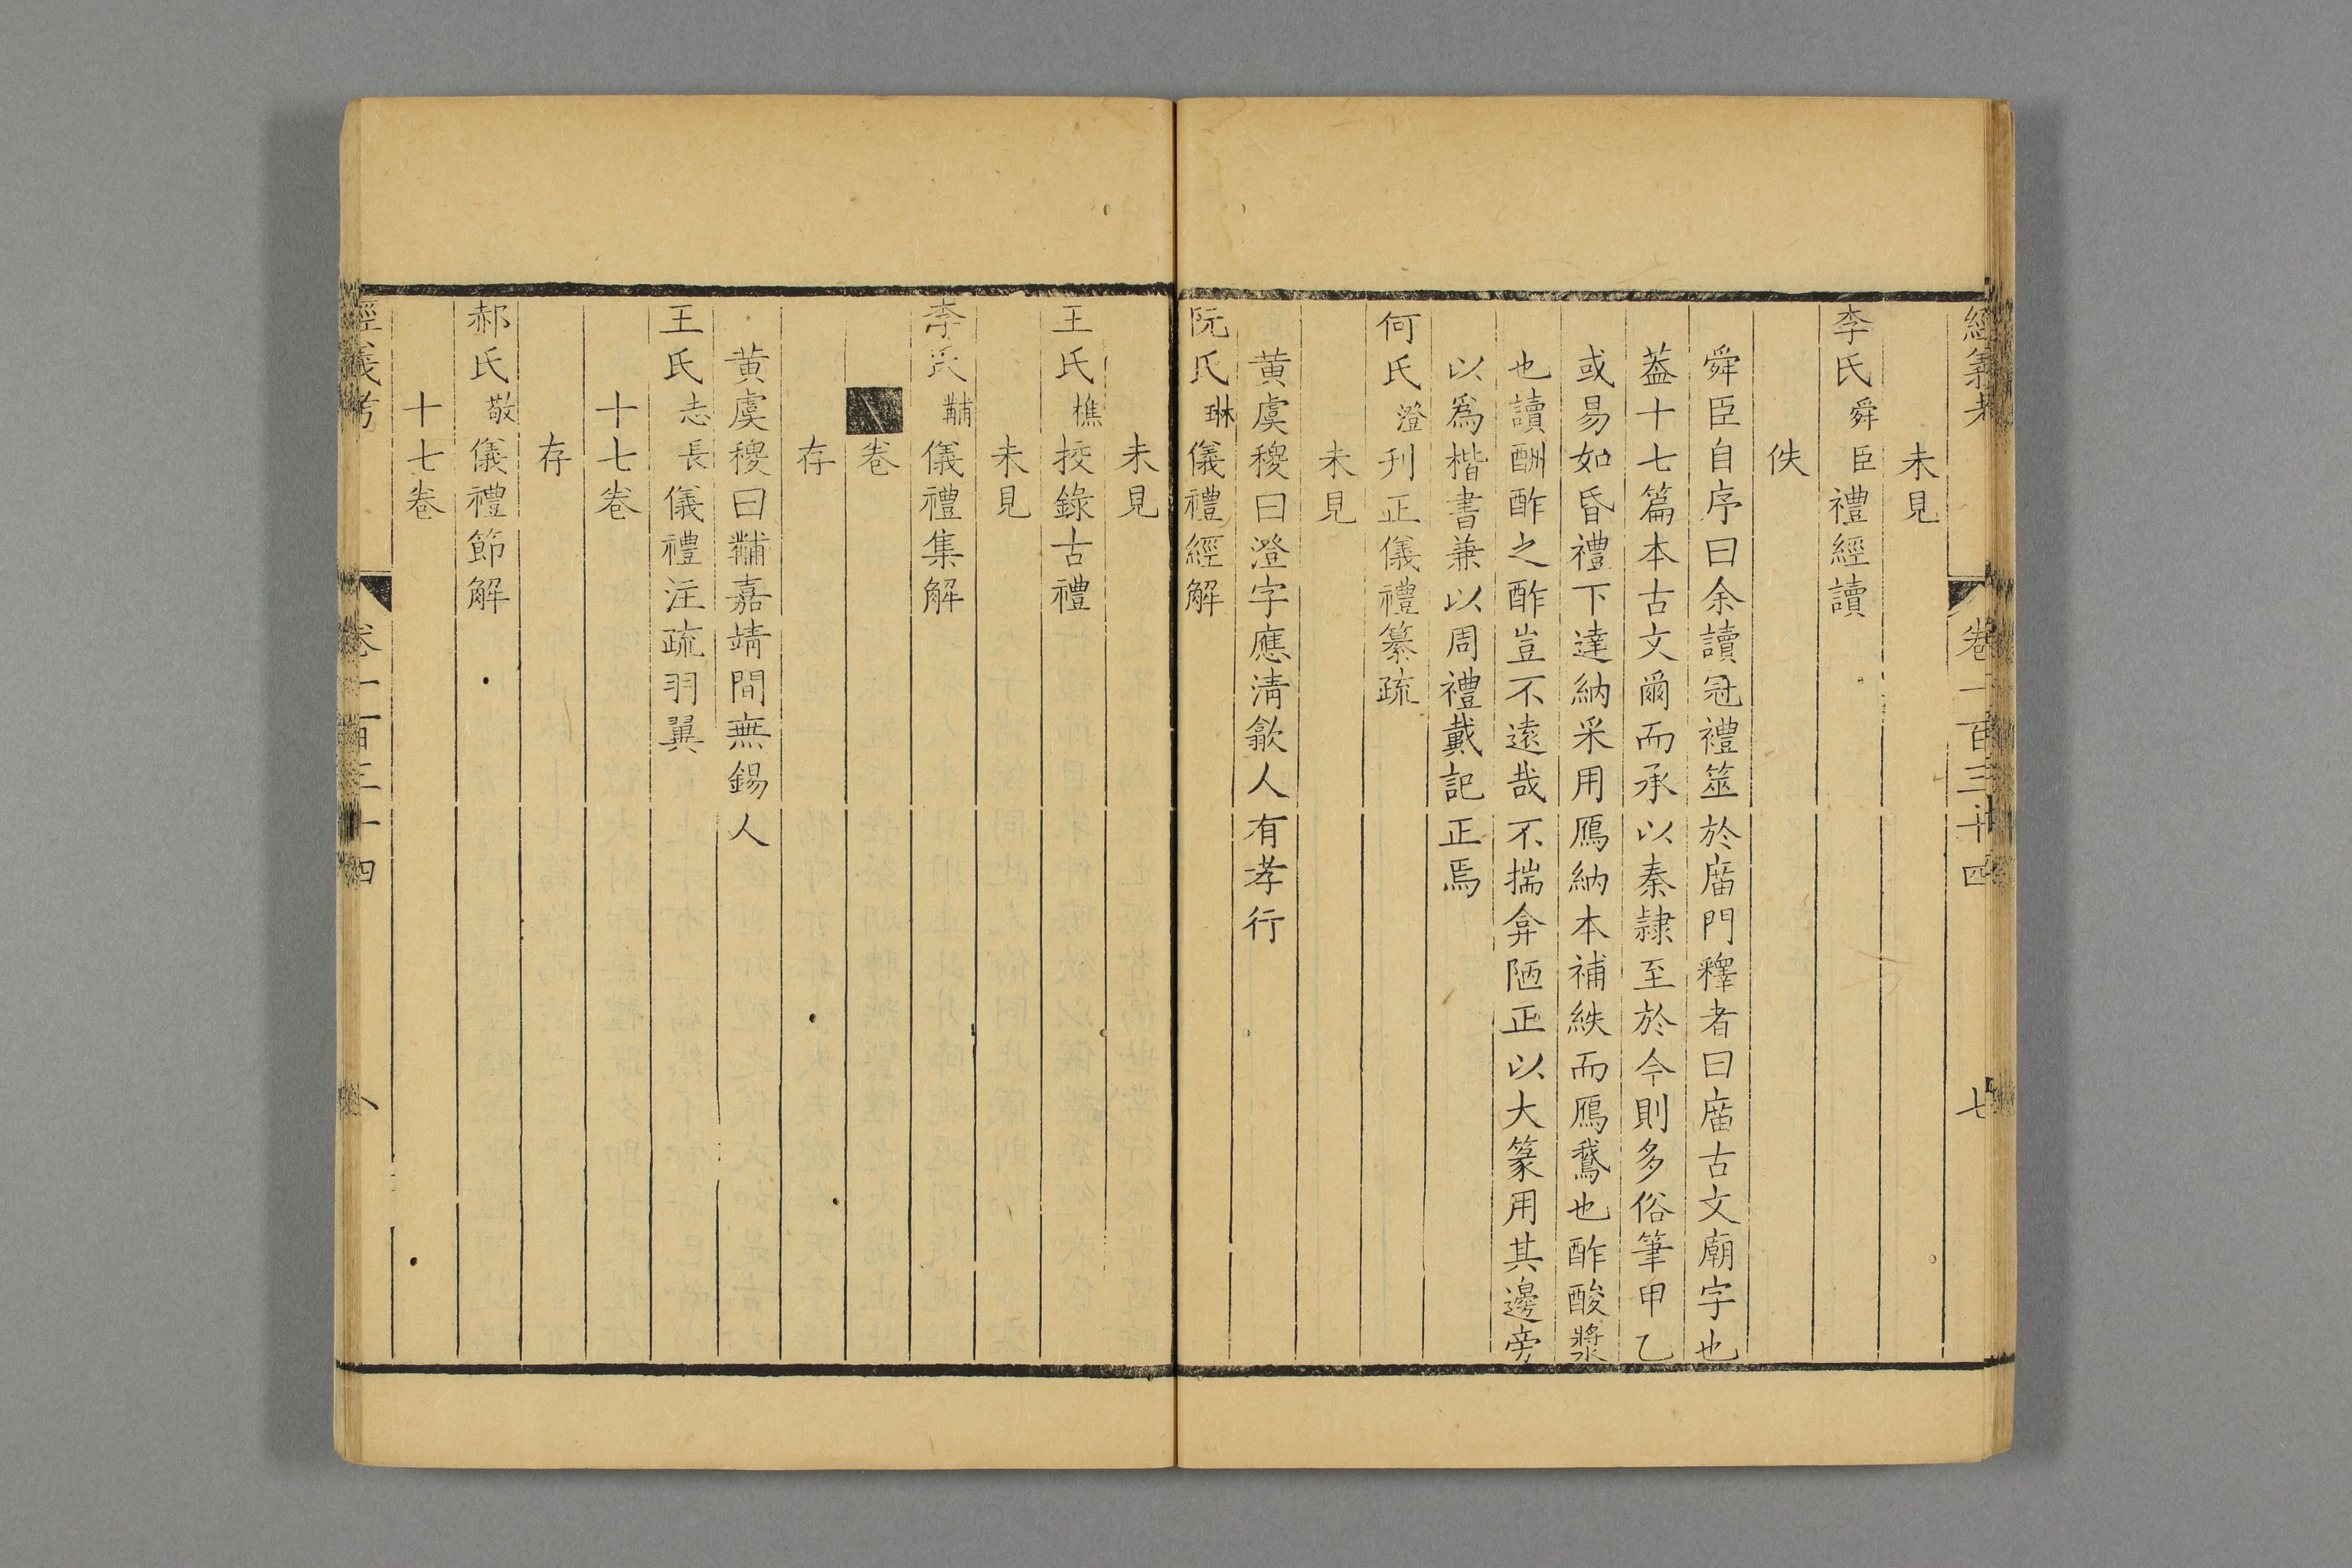 經義考 卷一百三十四 七
未見
李氏舜臣禮經讀
佚
舜臣自序曰余讀冠禮筮於庿門釋者曰庿古文廟字也
葢十七篇本古文爾而承以秦隷至於今則多俗筆甲乙
或易如昏禮下達納采用鴈納本補紩而鴈鵞也酢酸漿
也讀酬酢之酢豈不遠哉不揣弇陋正以大篆用其邊旁
以爲楷書兼以周禮戴記正焉
何氏澄刋正儀禮纂疏
未見
黄虞稷曰澄字應淸歙人有孝行
阮氏琳儀禮經解
未見
王氏樵挍錄古禮
未見
李氏黼儀禮集解
卷
存
黄虞稷曰黼嘉靖間無錫人
王氏志長儀禮注疏羽翼
十七卷
存
郝氏敬儀禮節解
十七卷
經義考 卷一百三十四 八